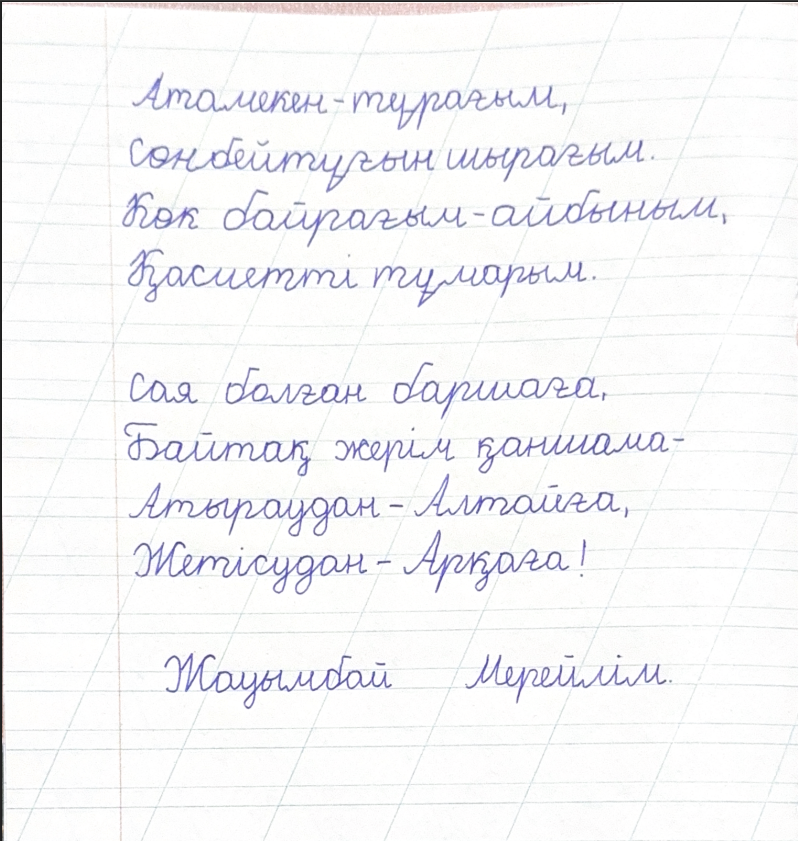 Атамекен-тұрағым,
Сөнбейтұғын шырағым.
Көк байрағым-айбыным,
Қасиетті тұмарым.
Сая болған баршаға,
Байтақ жерім қаншама-
Атыраудан-Алтайға,
Жетісудан-Арқаға!
Жауымбай Мерейлім.